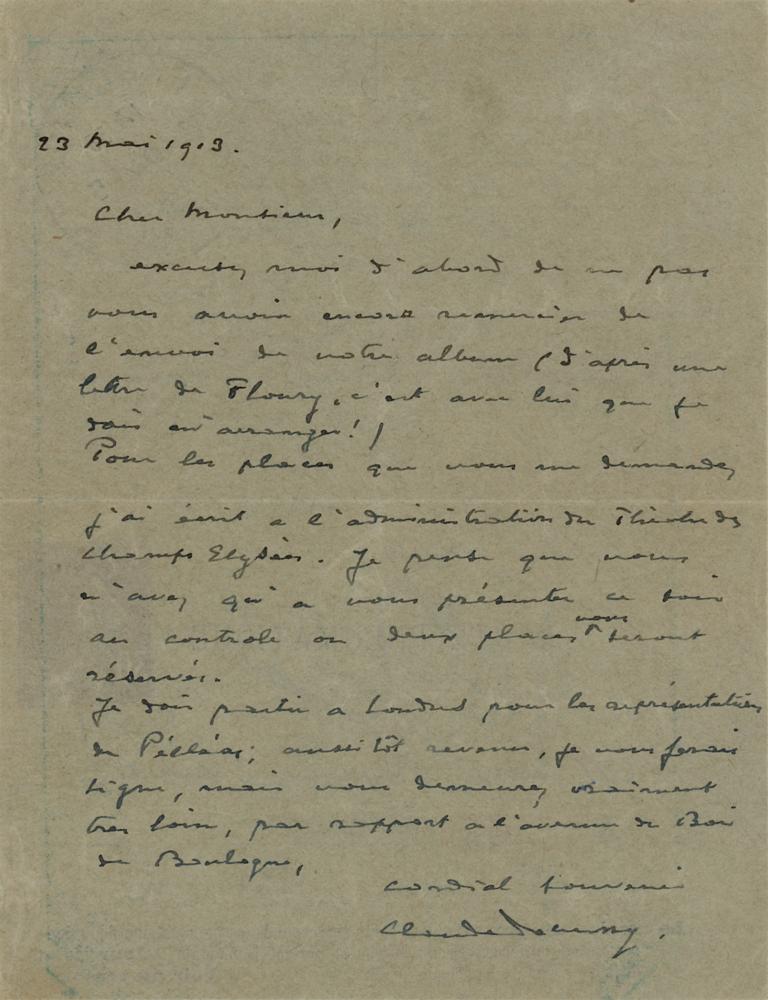 23 Mai 1913.
Cher Monsieur,
excusez moi d'abord de ne pas
vous avoir encore remercier de
l'envoi de votre album (d'après une
lettre de Floury, c'est avec lui que je
dois m'arranger!)
Pour les places que vous me demandez
j'ai écrit a l'administration du Théatre des
Champs Elysées. Je pense que vous
n'avez qu'a vous présenter ce soir
au controle ou deux places vous seront
réservés.
Je dois partir a Londres pour les représentations
de Pélléas; aussitôt revenu, je vous ferais
signe, mais vous demeurez vraiment
tres loin, par rapport a l'avenue du Bois
de Boulogne,
cordial souvenir
Claude Debussy.